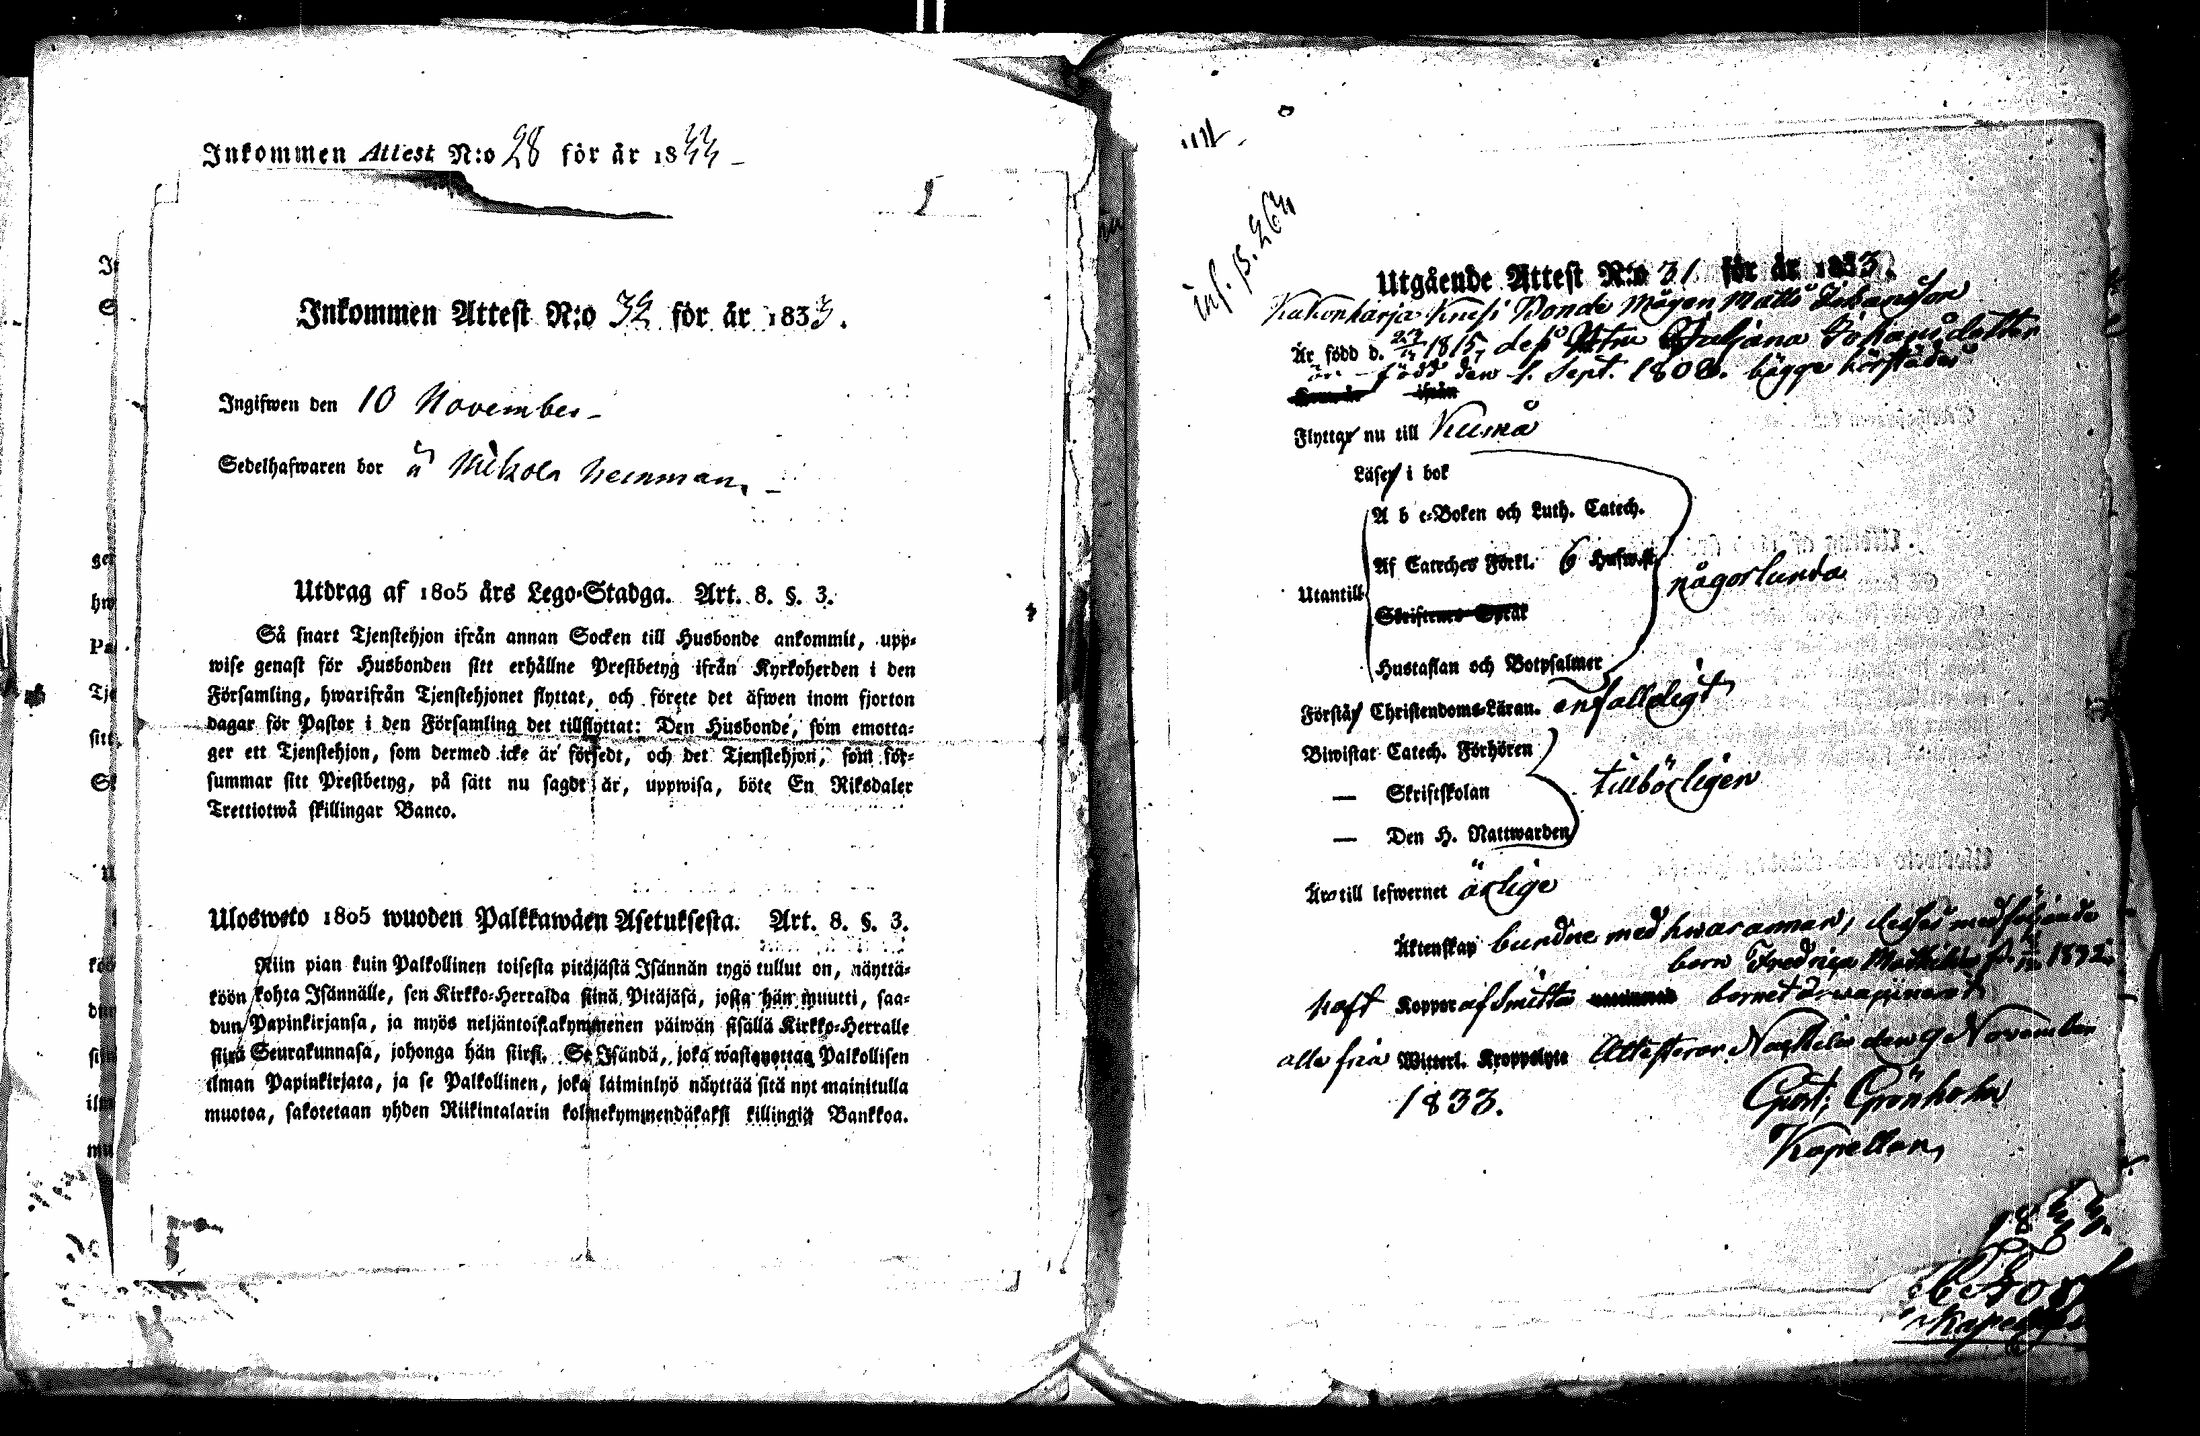 Inkommen Attest N:o 28 för år 1833
Inkommen Attest N:o 32 för år 1833.
Ingifwen den 10 November
Sedelhafwaren bor å Mikola hemman
Utdrag af 1805 års Lego-Stadga. Art. 8. §. 3.
Så snart Tjenstehjon ifrån annan Socken till Husbonde ankommit, upp-
wise genast för Husbonden sitt erhållne Prestbetyg ifrån Kyrkoherden i den
Församling, hwarifrån Tjenstehjonet flyttat, och förete det äfwen inom fjorton
dagar för Pastor i den Församling det tillflyttat: Den Husbonde, som emotta-
ger ett Tjenstehjon, som dermed icke är försedt, och det Tjenstehjon, som för-
summar sitt Prestbetyg, på sätt nu sagdt är, uppwisa, böte En Riksdaler
Trettiotwå skillingar Banco.
Ulosweto 1805 wuoden Palkkawäen Asetuksesta. Art. 8. §. 3.
Niin pian kuin Palkollinen toisesta pitäjästä Isännän tygö tullut on, näyttä-
köön kohta Isännälle, sen Kirkko-Herralda siinä Pitäjäsä, josta hän muutti, saa-
dun Papinkirjansa, ja myös neljäntoistakymmenen päiwän sisällä Kirkko-Herralle
siinä Seurakunnasa, johonga hän siirsi. Se Isändä, joka wastaanottaa Palkollisen
ilman Papinkirjata, ja se Palkollinen, joka laiminlyö näyttää sitä nyt mainitulla
muotoa, sakotetaan yhden Riikintalarin kolmekymmendäkaksi killingiä Bankkoa.
inf. p. 264
Utgående Attest N:o 31 för år 1833.
Bonde Mågen Matts Johansson
Är född d. 1815, dess Johansdotter
född den 1. Sept. 1808. bägge härstädes
ifrån
Flyttar nu till Kumå
Läser i bok
A b c-Boken och Luth. Catech.
Af Cateches Förkl. 6 Hufwst.
någorlunda
Utantill
Skriftenes Språk
Hustaflan och Botpsalmer
Förstår Christendoms-Läran. enfalldeligt
Biwistat Catech. Förhören
— Skriftskolan
tillbörligen
— Den H. Nattwarden
Äro till lefwernet ärlige
Äktenskap bundne med hwarannan, deras medföljande
barn Fredrica 1832,
haft Koppor af smitta barnet är vaccinerat
alla fria Witterl. Kroppslyte Attesterar Nackila den 9 November
1833.
Gust. Grönholm
Kapellan
1833.